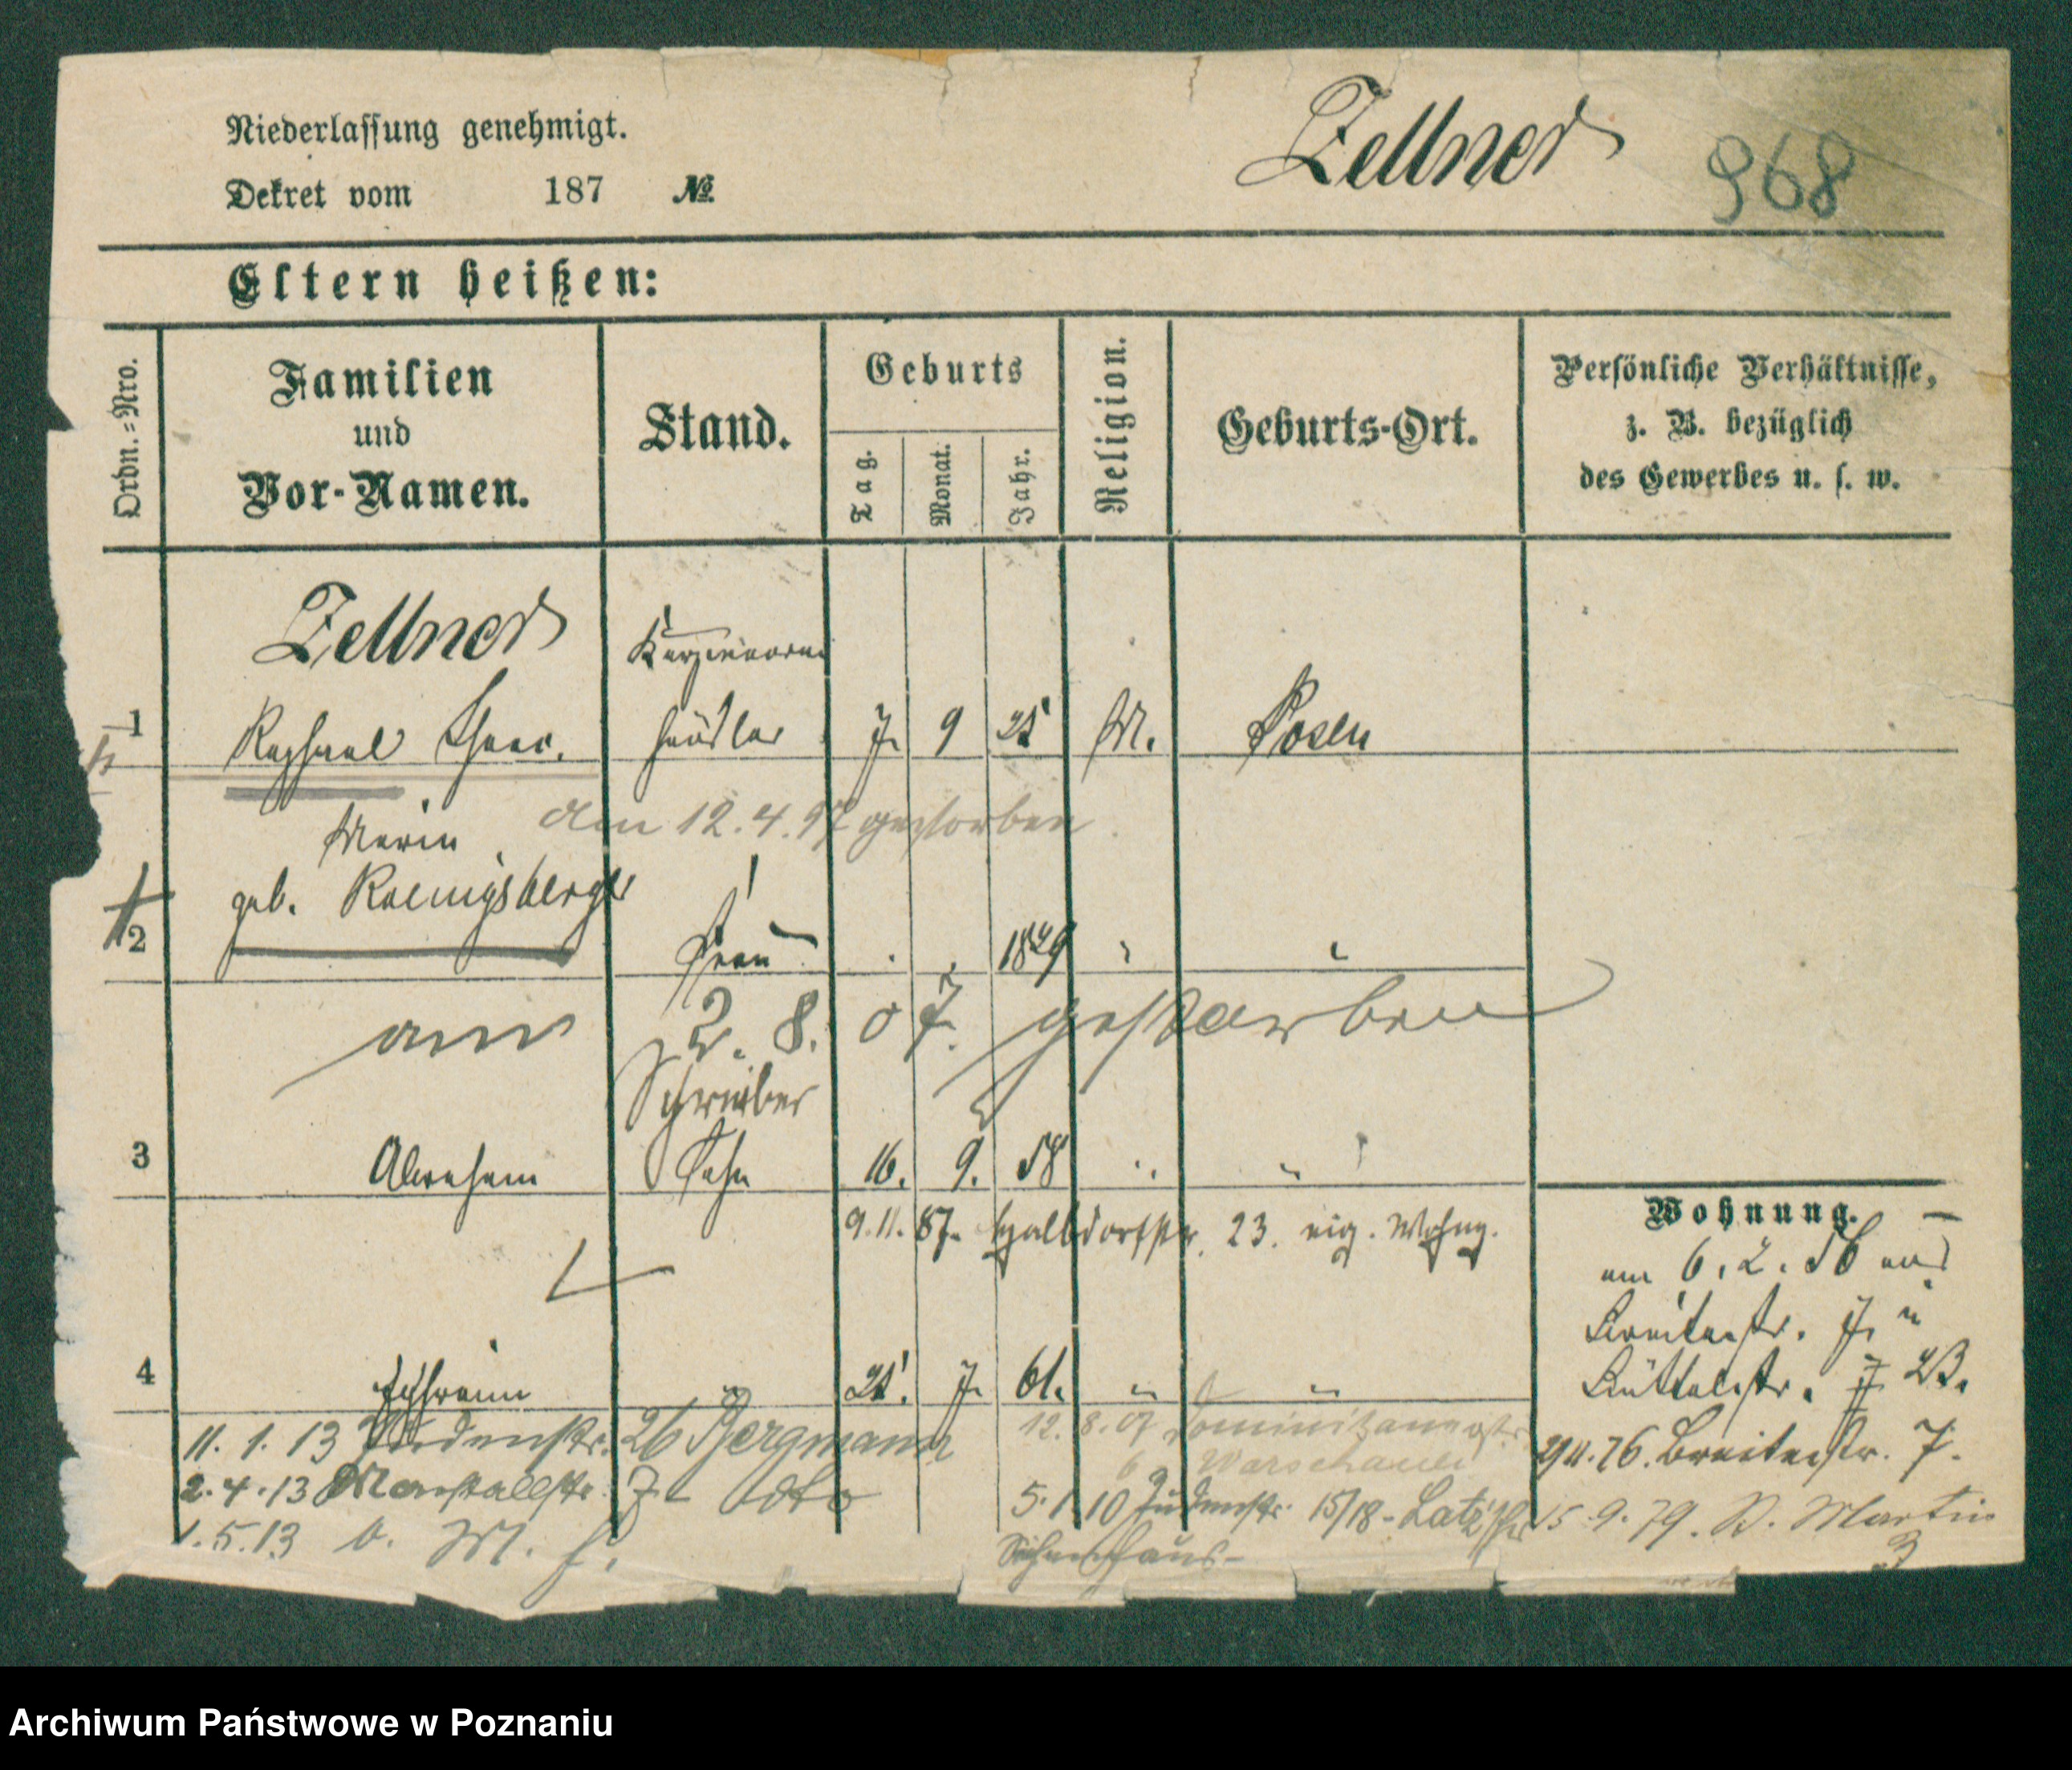 Niederlassung genehmigt.
Dekret vom 187 №
Zellner
968
Eltern heißen:
Ordn.-Nro.
Familien
und
Vor-Namen.
Stand.
Geburts
Tag.
Monat.
Jahr.
Religion.
Geburts-Ort.
Persönliche Verhältnisse,
z. B. bezüglich
des Gewerbes u. s. w.
Zellner
Kurzwaaren
1 Raphael händler 7. 9 25 M. Posen
den 12.4.97 gestorben
Marie
geb. Koenigsberger
2 Frau 1829 " "
am 2. 8. 07. gestorben
Schreiber
3 Abraham Sohn 16. 9. 58 " "
9.11.87. Halbdorfstr. 23. eig. Wohng.
Wohnung.
am 6.2.56 aus
Breitestr. 7. u
Büttelstr.
4 Ephraim " 25. 7. 61. " "
11.1.13 Judenstr. 26 Bergmann
12.8.07 Dominikanerstr.
6 Warschauer
76. Breitestr. 7.
2.4.13 Marstallstr. 7 dto
5.1.10 Judenstr. 15/18 - Latz'sches
Siechenhaus -
15.9.79. St. Martin
3
1.5.13 v. M. h.
Archiwum Państwowe w Poznaniu